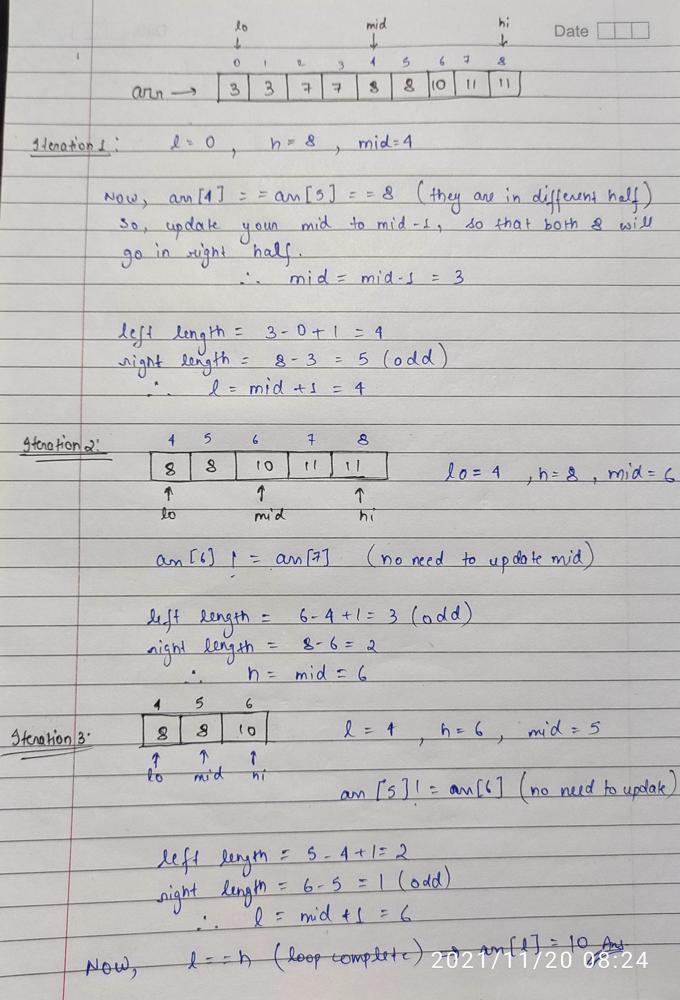 Date
lo mid hi
0 1 2 3 4 5 6 7 8
arr → 3 3 7 7 8 8 10 11 11
Iteration 1: l = 0 , h = 8 , mid = 4
Now, arr[4] = = arr[5] = = 8 (they are in different half)
So, update your mid to mid-1, so that both 8 will
go in right half.
∴ mid = mid-1 = 3
left length = 3 - 0 + 1 = 4
right length = 8 - 3 = 5 (odd)
∴ l = mid + 1 = 4
Iteration 2:
4 5 6 7 8
8 8 10 11 11
lo = 4 , h = 8 , mid = 6
lo mid hi
arr[6] ! = arr[7] (no need to update mid)
left length = 6 - 4 + 1 = 3 (odd)
right length = 8 - 6 = 2
∴ h = mid = 6
4 5 6
Iteration 3: 8 8 10 l = 4 , h = 6 , mid = 5
lo mid hi
arr[5] ! = arr[6] (no need to update)
left length = 5 - 4 + 1 = 2
right length = 6 - 5 = 1 (odd)
∴ l = mid + 1 = 6
Now, l = = h (loop complete) → arr[l] = 10 Ans
2021/11/20 08:24